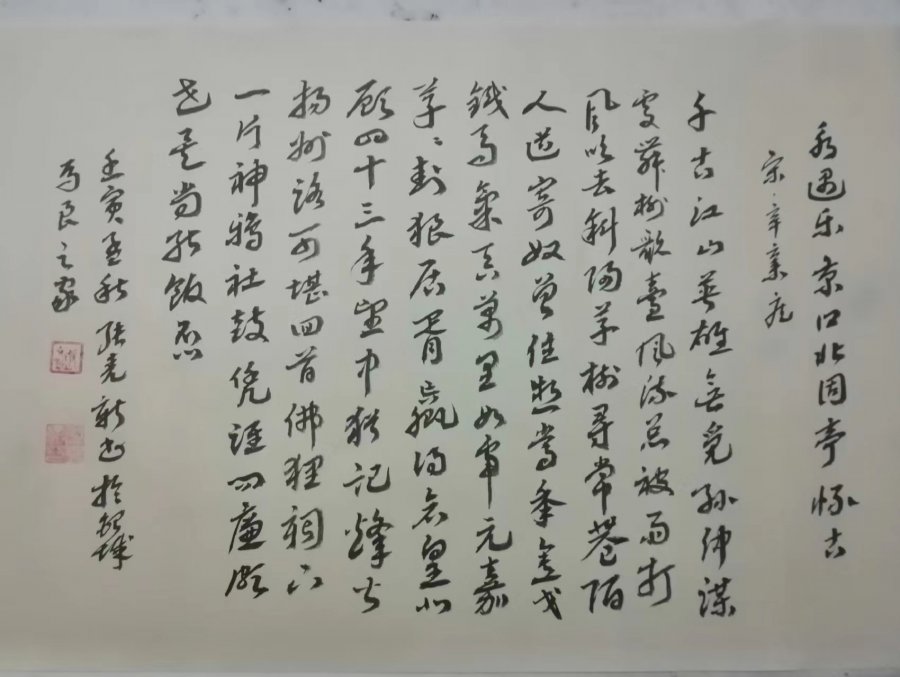 永遇乐京口北固亭怀古
宋·辛弃疾
千古江山英雄无觅孙仲谋
处舞榭歌臺风流总被雨打
风吹去斜阳草树寻常巷陌
人道寄奴曾住想当年金戈
鐵马气吞萬里如虎元嘉
草草封狼居胥赢得仓皇北
顾四十三年望中犹记烽火
扬州路可堪回首佛狸祠下
一片神鸦社鼓凭谁问廉颇
老矣尚能饭否
壬寅孟秋 张光新书于城
为良之家